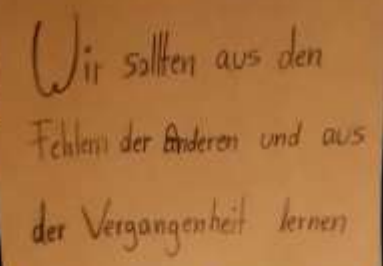 Wir sollten aus den
Fehlern der Anderen und aus
der Vergangenheit lernen